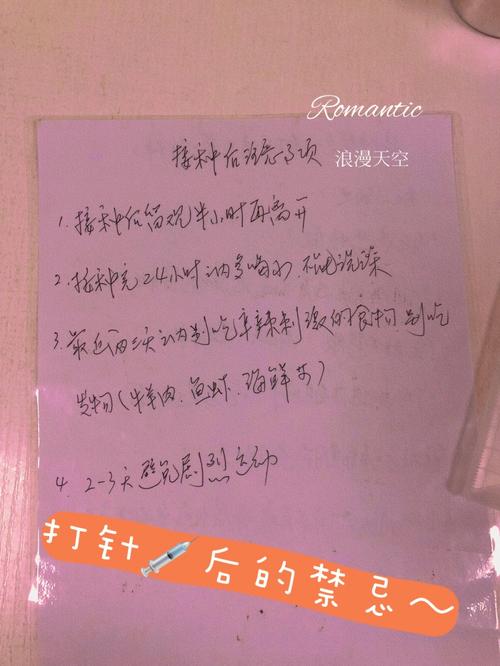 Romantic
浪漫天空
接种后注意事项
1. 接种后留观半小时再离开
2. 接种完24小时内多喝水.不能洗澡
3. 最近两三天内别吃辛辣刺激的食物.别吃
发物(牛羊肉.鱼虾.海鲜等)
4. 2-3天避免剧烈运动
打针💉后的禁忌~